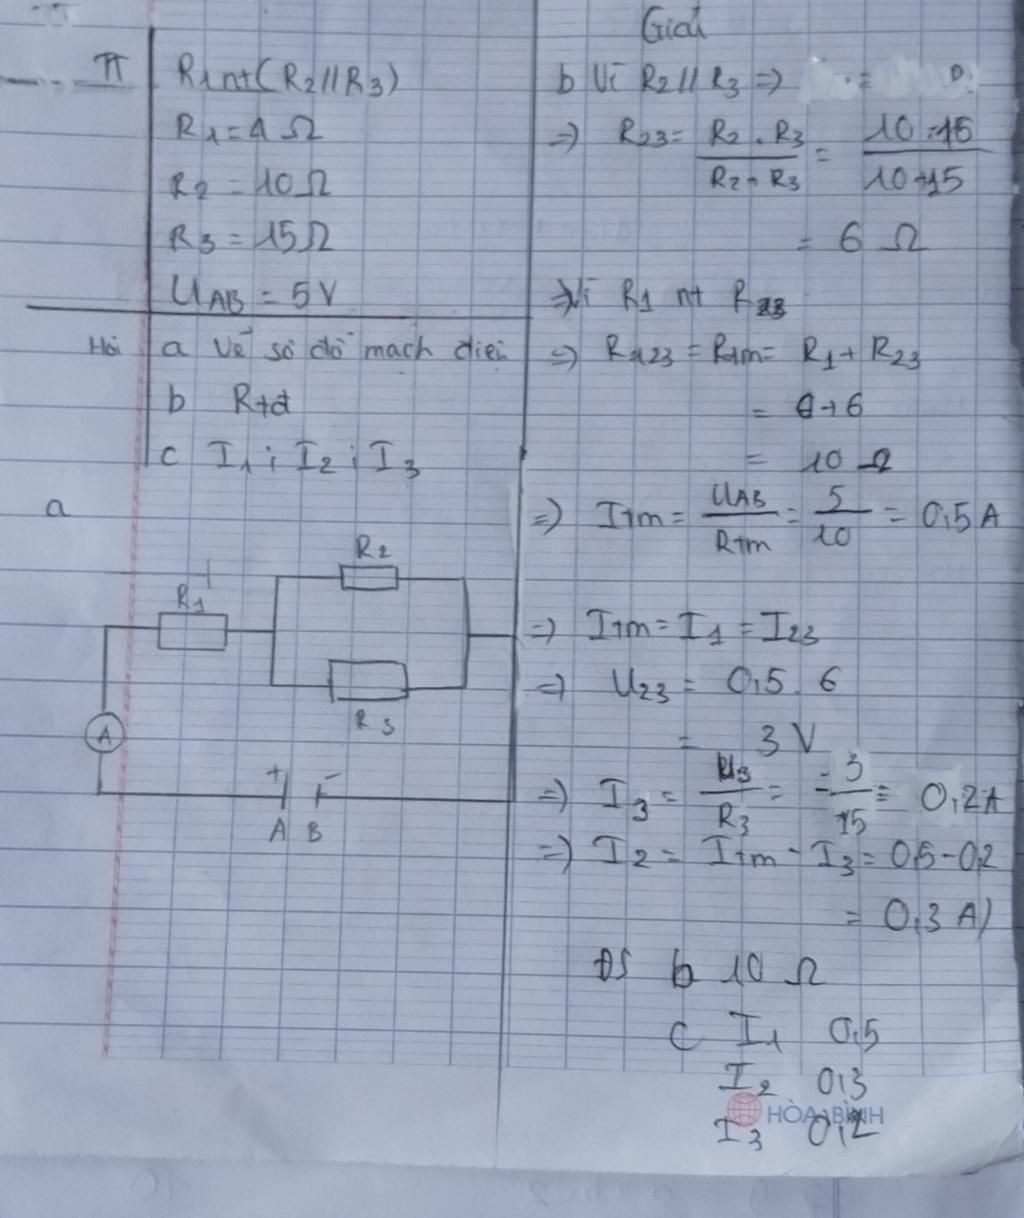 Giải
TT R1nt(R2//R3)
R1=4 Ω
R2 = 10Ω
R3 = 15Ω
UAB = 5 V
Hỏi a Vẽ sơ đồ mạch điện
b Rtđ
c I1; I2; I3
a
R2
R1
R3
A
+ -
A B
b Vì R2 // R3 =>
=> R23 = R2 . R3 / R2 + R3 = 10 . 15 / 10+15
= 6 Ω
=> Vì R1 nt R23
=> R123 = Rtm = R1 + R23
= 4+6
= 10 Ω
=> Itm = UAB / Rtm = 5 / 10 = 0,5 A
=> Itm = I1 = I23
=> U23 = 0,5 . 6
= 3 V
=> I3 = U3 / R3 = 3 / 15 = 0,2A
=> I2 = Itm - I3 = 0,5-0,2
= 0,3 A)
ĐS b 10 Ω
c I1 0,5
I2 0,3
HÒA BÌNH
I3 0,2